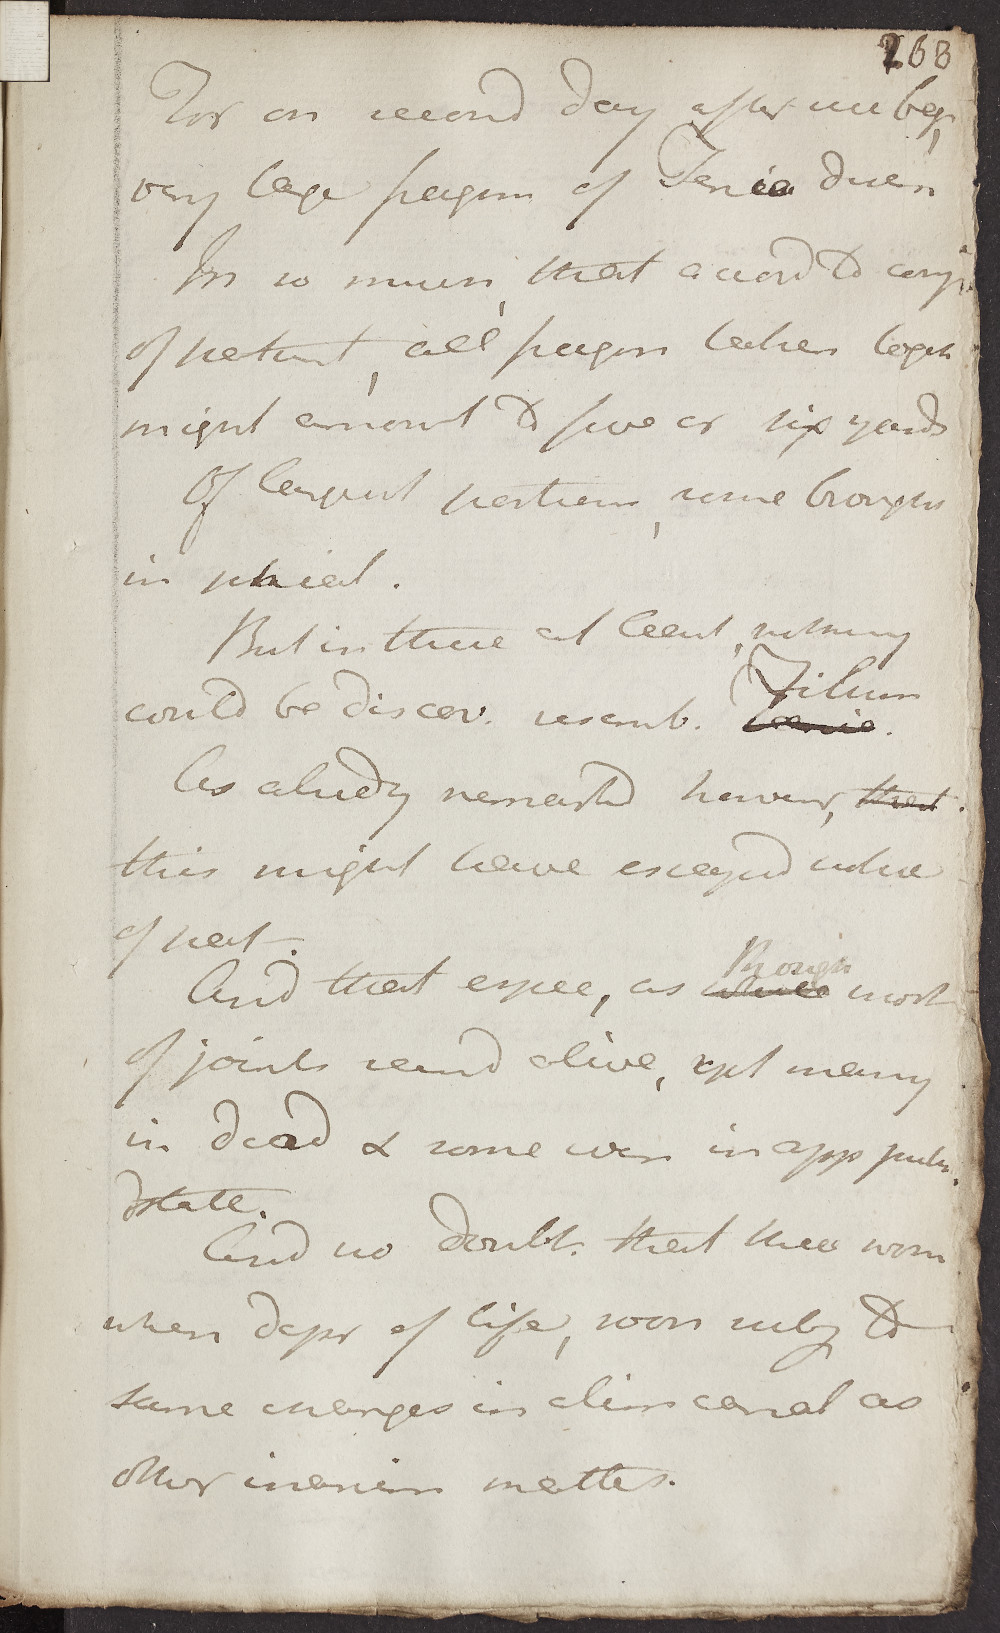 268
For on second day after we beg,
very large fragm of Tenia duen
In so much, that accord to comp
of patient, all fragm taken togeth
might amount to five or six yards
Of largest portions, some brought
in phial.
But in these at least, nothing
could be discov. resemb. Filum
taenia.
As already remarkd however, that
this might have escaped notice
of pat.
And that espec, as though
while most
of joints secund alive, yet many
in dead & some even in app putr.
state.
And no doubt that these worm
when depr of life, soon subj to
same changes in alim canal as
other inanim matters.